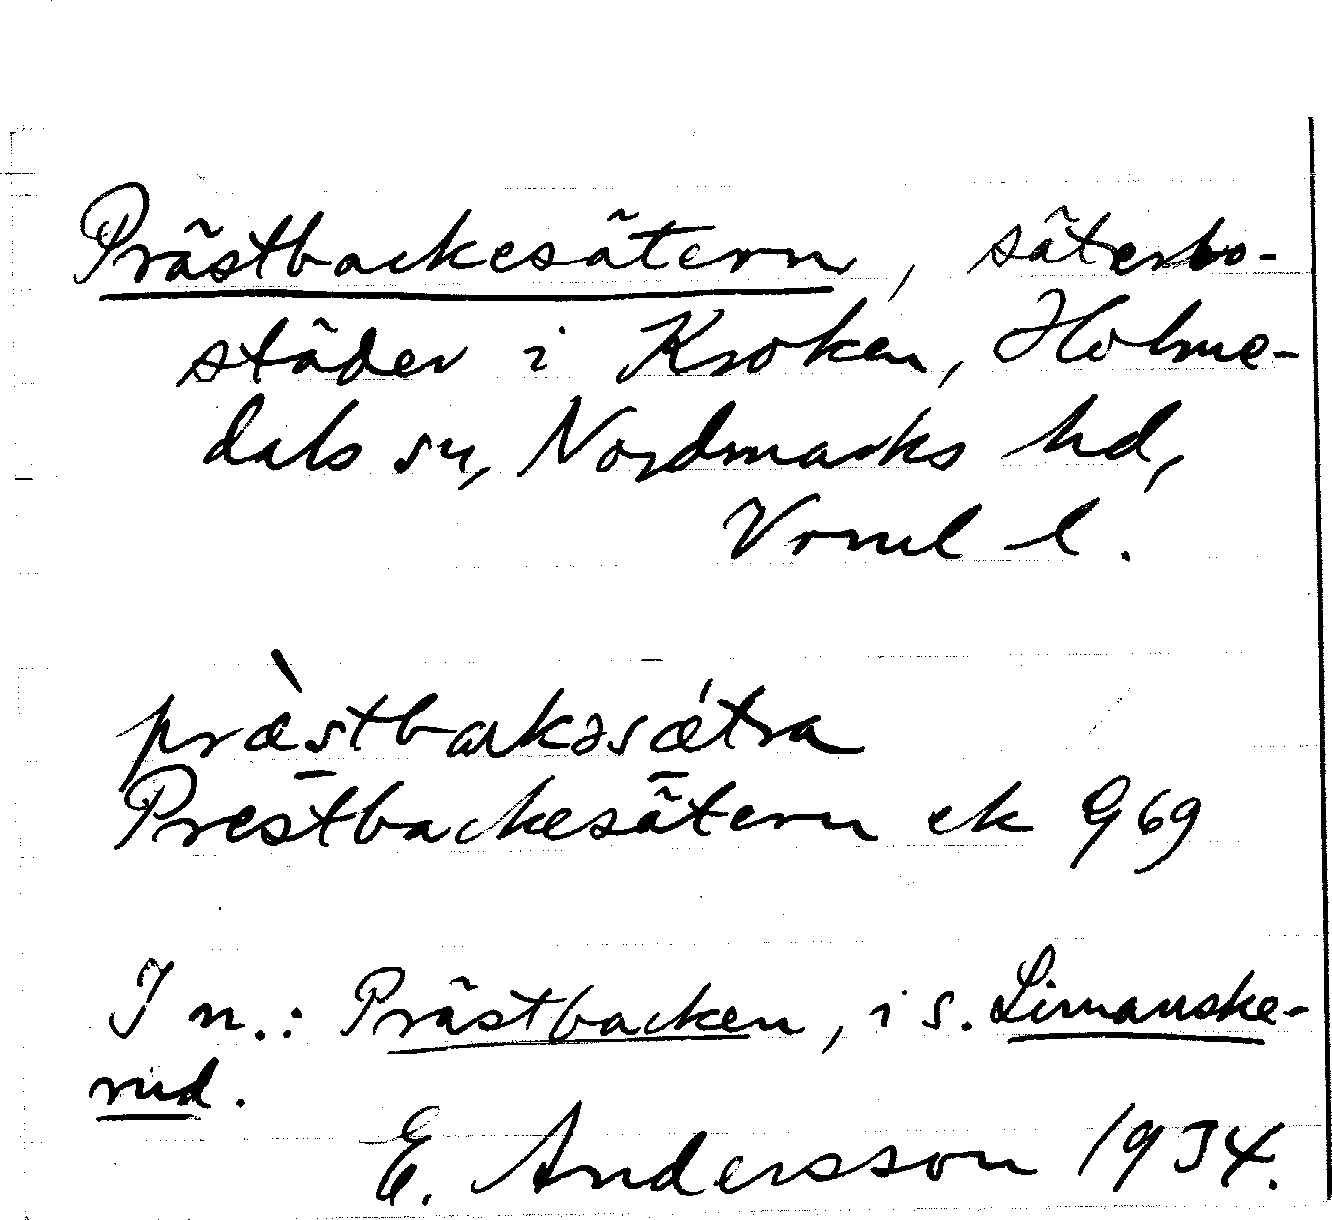 Prästbackesätern, säterbo-
städer i Kroken, Holme-
dals sn, Nordmarks hd,
Vrml l.
præ̀stbakəsǽtra
Prestbackesätern ek 969
I n.: Prästbacken, i s. Limanske-
rud.
E. Andersson 1934.